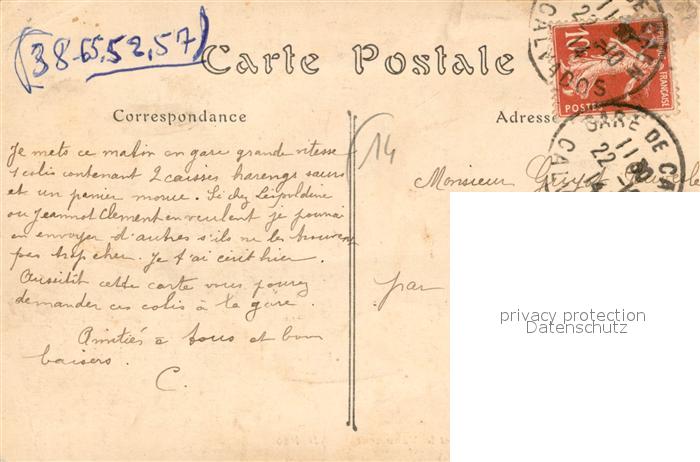 (38-65,52,57)
Carte Postale
Correspondance
Adresse
10
POSTES
FRANÇAISE
GARE DE CAEN
CALVADOS
11
22-10
14
GARE DE CA
11
22
CAL
14
Je mets ce matin en gare grande vitesse
1 colis contenant 2 caisses harengs saurs
et un panier morue. Si chez Léopoldine
ou Jeannot Clément en veulent je pourrai
en envoyer d'autres s'ils ne les trouvent
pas trop cher. Je t'ai écrit hier.
Aussitôt cette carte vous pourrez
demander ces colis à la gare.
Amitiés à tous et bons
baisers.
C.
Monsieur
par
privacy protection
Datenschutz